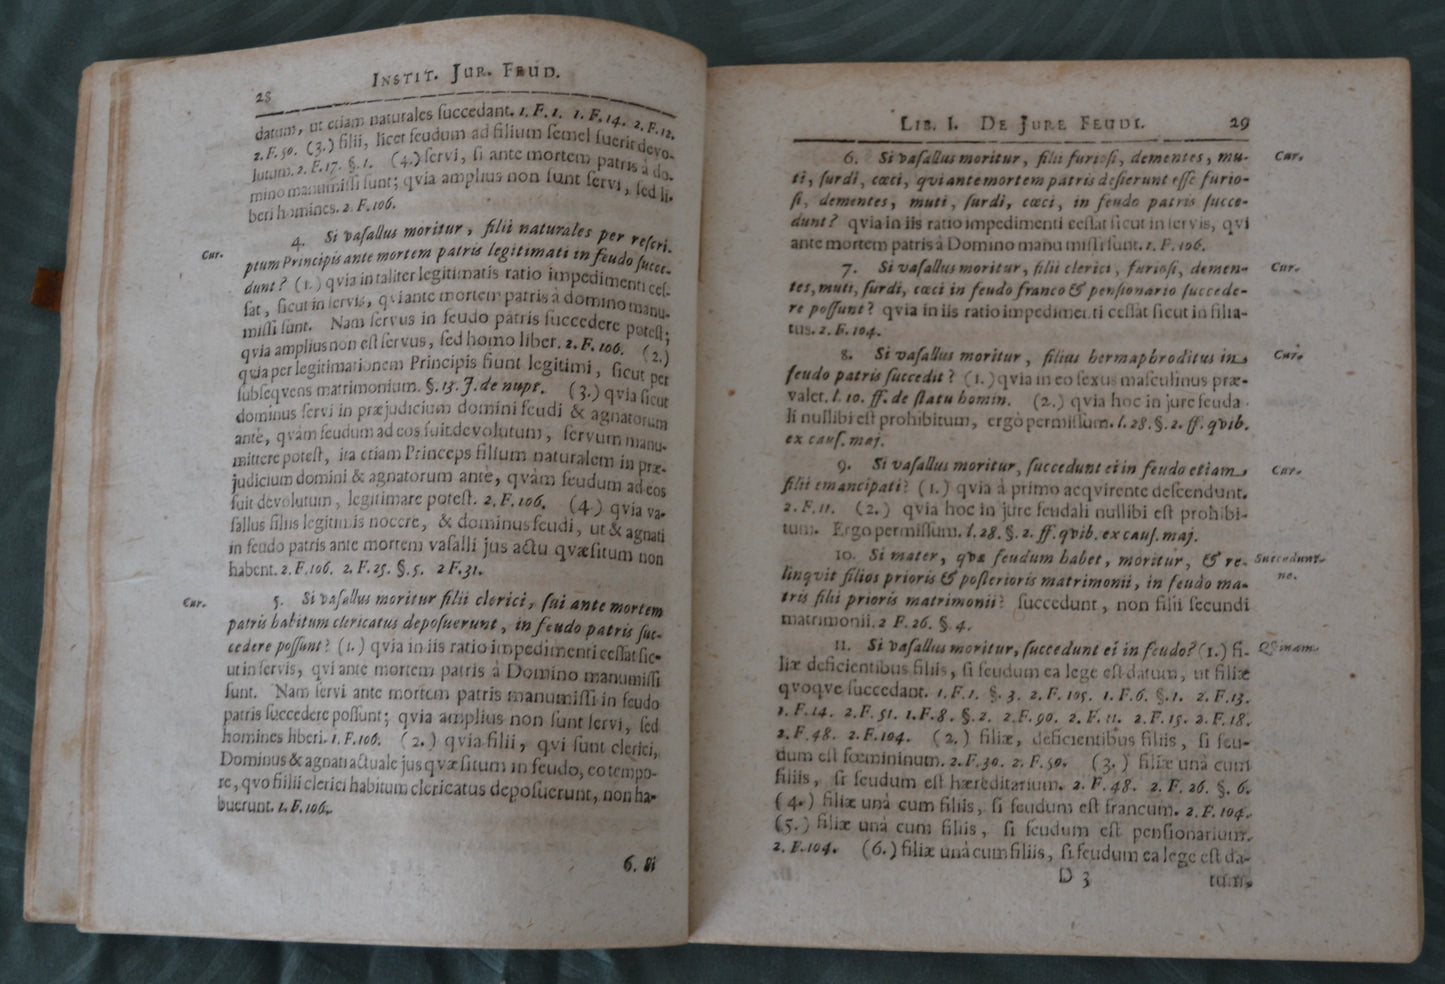 28 INSTIT. JUR. FEUD.
datum, ut etiam naturales ſuccedant. 1. F. 1. 1. F. 14. 2. F. 12.
2. F. 50. (3.) filii, licet feudum ad filium ſemel fuerit devo-
lutum. 2. F. 17. §. 1. (4.) ſervi, ſi ante mortem patris à do-
mino manumiſſi ſunt; qvia amplius non ſunt ſervi, ſed li-
beri homines. 2. F. 106.
Cur. 4. Si vaſallus moritur, filii naturales per reſcri-
ptum Principis ante mortem patris legitimati in feudo ſucce-
dunt? (1.) qvia in taliter legitimatis ratio impedimenti ceſ-
ſat, ſicut in ſervis, qvi ante mortem patris à domino manu-
miſſi ſunt. Nam ſervus in feudo patris ſuccedere poteſt;
qvia amplius non eſt ſervus, ſed homo liber. 2. F. 106. (2.)
qvia per legitimationem Principis fiunt legitimi, ſicut per
ſubſeqvens matrimonium. §. 13. J. de nupt. (3.) qvia ſicut
dominus ſervi in præjudicium domini feudi & agnatorum
antè, qvàm feudum ad eos ſuit devolutum, ſervum manu-
mittere poteſt, ita etiam Princeps filium naturalem in præ-
judicium domini & agnatorum antè, qvàm feudum ad eos
fuit devolutum, legitimare poteſt. 2. F. 106. (4.) qvia va-
ſallus filiis legitimis nocere, & dominus feudi, ut & agnati
in feudo patris ante mortem vaſalli jus actu qvæſitum non
habent. 2. F. 106. 2. F. 25. §. 5. 2 F. 31.
Cur. 5. Si vaſallus moritur filii clerici, ſui ante mortem
patris habitum clericatus depoſuerunt, in feudo patris ſuc-
cedere poſſunt? (1.) qvia in iis ratio impedimenti ceſſat ſic-
ut in ſervis, qvi ante mortem patris à Domino manumiſſi
ſunt. Nam ſervi ante mortem patris manumiſſi in feudo
patris ſuccedere poſſunt; qvia amplius non ſunt ſervi, ſed
homines liberi. 1. F. 106. (2.) qvia filii, qvi ſunt clerici,
Dominus & agnati actuale jus qvæſitum in feudo, eo tempo-
re, qvo fiilii clerici habitum clericatus depoſuerunt, non ha-
buerunt. 1. F. 106.
6. Si
LIB. I. DE JURE FEUDI. 29
6. Si vaſallus moritur, filii furioſi, dementes, mu- Cur.
ti, ſurdi, cœci, qui ante mortem patris deſierunt eſſe furio-
ſi, dementes, muti, ſurdi, cœci, in feudo patris ſucce-
dunt? qvia in iis ratio impedimenti ceſſat ſicut in ſervis, qvi
ante mortem patris à Domino manu miſſi ſunt. 1. F. 106.
7. Si vaſallus moritur, filii clerici, furioſi, demen- Cur.
tes, muti, ſurdi, cœci in feudo franco & penſionario ſuccede-
re poſſunt? qvia in iis ratio impedimenti ceſſat ſicut in filia-
bus. 2. F. 104.
8. Si vaſallus moritur, filius hermaphroditus in Cur.
feudo patris ſuccedit? (1.) qvia in eo ſexus maſculinus præ-
valet. l. 10. ff. de ſtatu homin. (2.) qvia hoc in jure feuda-
li nullibi eſt prohibitum, ergò permiſſum. l. 28. §. 2. ff. qvib.
ex cauſ. maj.
9. Si vaſallus moritur, ſuccedunt ei in feudo etiam Cur.
filii emancipati? (1.) qvia à primo acqvirente deſcendunt.
2. F. 11. (2.) qvia hoc in jure feudali nullibi eſt prohibi-
tum. Ergo permiſſum. l. 28. §. 2. ff. qvib. ex cauſ. maj.
10. Si mater, qvæ feudum habet, moritur, & re- Succedunt-
linqvit filios prioris & poſterioris matrimonii, in feudo ma- ne.
tris filii prioris matrimonii? ſuccedunt, non filii ſecundi
matrimonii. 2 F. 26. §. 4.
11. Si vaſallus moritur, ſuccedunt ei in feudo? (1.) fi- Qvinam
liæ deficientibus filiis, ſi feudum ea lege eſt datum, ut filiæ
qvoqve ſuccedant. 1. F. 1. §. 3. 2. F. 105. 1. F. 6. §. 1. 2. F. 13.
1. F. 14. 2. F. 51. 1. F. 8. §. 2. 2. F. 50. 2. F. 11. 2. F. 15. 2. F. 18.
2. F. 48. 2. F. 104. (2.) filiæ, deficientibus filiis, ſi feu-
dum eſt fœmininum. 2. F. 30. 2. F. 50. (3.) filiæ unà cum
filiis, ſi feudum eſt hæreditarium. 2. F. 48. 2. F. 26. §. 6.
(4.) filiæ unà cum filiis, ſi feudum eſt francum. 2. F. 104.
(5.) filiæ unà cum filiis, ſi feudum eſt penſionarium.
2. F. 104. (6.) filiæ unà cum filiis, ſi feudum ea lege eſt da-
D 3 tum,